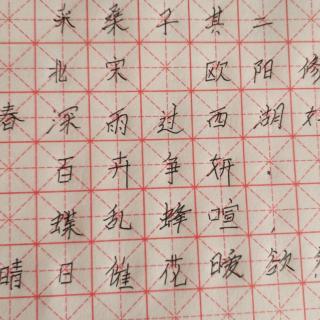 采桑子其二
北宋 欧阳修
春深雨过西湖好
百卉争妍，
蝶乱蜂喧，
晴日催花暖欲